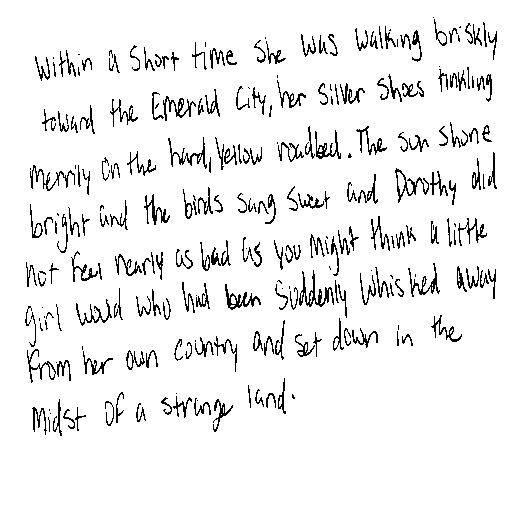 Within a short time she was walking briskly
toward the Emerald City, her silver shoes tinkling
merrily on the hard, yellow roadbed. The sun shone
bright and the birds sang sweet and Dorothy did
not feel nearly as bad as you might think a little
girl would who had been suddenly whisked away
from her own country and set down in the
midst of a strange land.